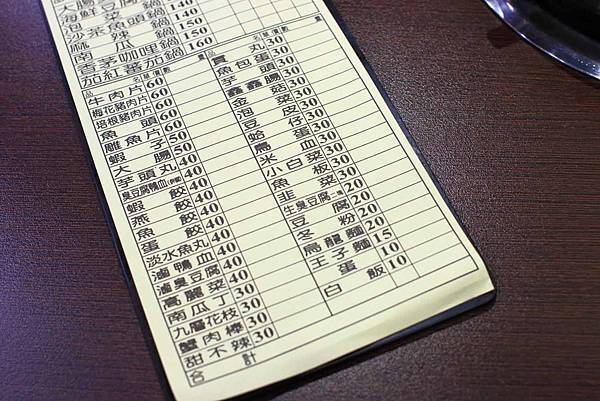 海鮮豆腐鍋
泡菜鍋
沙茶魚頭鍋
麻辣鍋
南瓜鍋
香茅咖哩鍋 150
茄紅蕃茄鍋 160
品名 單價 數量
牛肉片 60
梅花豬肉片 60
培根豬肉片 60
魚頭 60
雕魚片 60
蝦子 50
大腸 50
芋頭丸 40
臭豆腐鴨血 40
蝦餃 40
燕餃 40
魚餃 40
蛋餃 40
淡水魚丸 40
滷鴨血 40
滷臭豆腐 40
高麗菜 40
南瓜丁 30
九層花枝 30
蟹肉棒 30
甜不辣 30
合計
品名 單價 數量
貢丸 30
魚包蛋 30
芋頭 30
鑫鑫腸 30
金菇 30
泡菜 30
豆皮 30
蛤仔 30
鳥蛋 30
米血 30
小白菜 30
魚板 30
韭菜 30
生臭豆腐 20
豆腐 20
冬粉 20
烏龍麵 20
王子麵 15
蛋 10
白飯 10